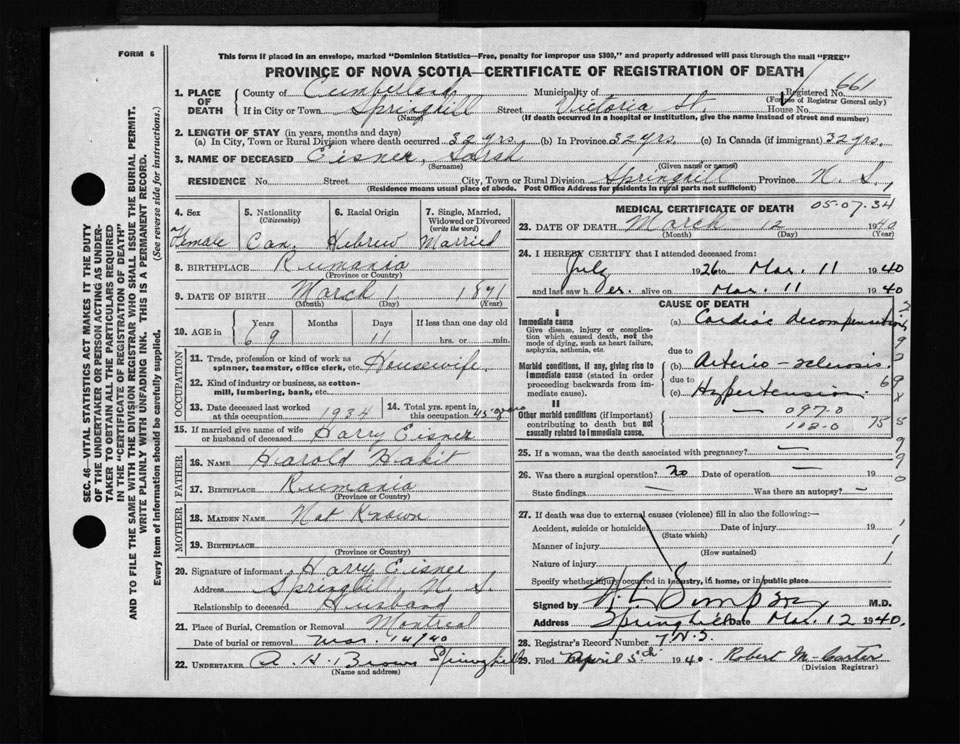 FORM 6
This form if placed in an envelope, marked "Dominion Statistics—Free, penalty for improper use $300," and properly addressed will pass through the mail "FREE"
PROVINCE OF NOVA SCOTIA—CERTIFICATE OF REGISTRATION OF DEATH
SEC. 46—VITAL STATISTICS ACT MAKES IT THE DUTY
OF THE UNDERTAKER OR PERSON ACTING AS UNDER-
TAKER TO OBTAIN ALL THE PARTICULARS REQUIRED
IN THE "CERTIFICATE OF REGISTRATION OF DEATH"
AND TO FILE THE SAME WITH THE DIVISION REGISTRAR WHO SHALL ISSUE THE BURIAL PERMIT.
WRITE PLAINLY WITH UNFADING INK. THIS IS A PERMANENT RECORD.
Every item of information should be carefully supplied. (See reverse side for instructions.)
1. PLACE OF DEATH County of Cumberland Municipality of Registered No. 661
(For use of Registrar General only)
If in City or Town Springhill Street Victoria St. House No.
(Name) (If death occurred in a hospital or institution, give the name instead of street and number)
2. LENGTH OF STAY (in years, months and days)
(a) In City, Town or Rural Division where death occurred 32 yrs. (b) In Province 32 yrs. (c) In Canada (if immigrant) 32 yrs.
3. NAME OF DECEASED Eisner, Sarah
(Surname) (Given name or names)
RESIDENCE No. Street City, Town or Rural Division Springhill Province N. S.,
(Residence means usual place of abode. Post Office Address for residents in rural parts not sufficient)
4. Sex Female
5. Nationality (Citizenship) Can.
6. Racial Origin Hebrew
7. Single, Married, Widowed or Divorced (write the word) Married
8. BIRTHPLACE Rumania
(Province or Country)
9. DATE OF BIRTH March 1 1871
(Month) (Day) (Year)
10. AGE in Years Months Days If less than one day old
69 11 hrs. or min.
OCCUPATION
11. Trade, profession or kind of work as spinner, teamster, office clerk, etc. Housewife
12. Kind of industry or business, as cotton-mill, lumbering, bank, etc.
13. Date deceased last worked at this occupation 1934
14. Total yrs. spent in this occupation 45 years
15. If married give name of wife or husband of deceased Harry Eisner
FATHER
16. NAME Harold Hakit
17. BIRTHPLACE Rumania
(Province or Country)
MOTHER
18. MAIDEN NAME Not Known
19. BIRTHPLACE
(Province or Country)
20. Signature of informant Harry Eisner
Address Springhill, N. S.
Relationship to deceased Husband
21. Place of Burial, Cremation or Removal Montreal
Date of burial or removal Mar. 14/40
22. UNDERTAKER A. H. Brown Springhill
(Name and address)
MEDICAL CERTIFICATE OF DEATH 05-07-34
23. DATE OF DEATH March 12 1940
(Month) (Day) (Year)
24. I HEREBY CERTIFY that I attended deceased from:
July 1926 to Mar. 11 1940
and last saw her alive on Mar. 11 1940
CAUSE OF DEATH
I
Immediate cause
Give disease, injury or complication which caused death, not the mode of dying, such as heart failure, asphyxia, asthenia, etc.
(a) Cardiac decompensation
due to
Morbid conditions, if any, giving rise to immediate cause (stated in order proceeding backwards from immediate cause).
(b) Arterio-sclerosis
due to
(c) Hypertension
II
Other morbid conditions (if important) contributing to death but not causally related to immediate cause.
— 097-0
102-0
25. If a woman, was the death associated with pregnancy? —
26. Was there a surgical operation? No Date of operation — 19
State findings — Was there an autopsy? —
27. If death was due to external causes (violence) fill in also the following:—
Accident, suicide or homicide Date of injury 19
(State which)
Manner of injury
(How sustained)
Nature of injury
Specify whether injury occurred in industry, in home, or in public place
Signed by Simpson M.D.
Address Springhill Date Mar. 12 1940.
28. Registrar's Record Number
29. Filed April 5th 1940. Robert McCarter
(Division Registrar)